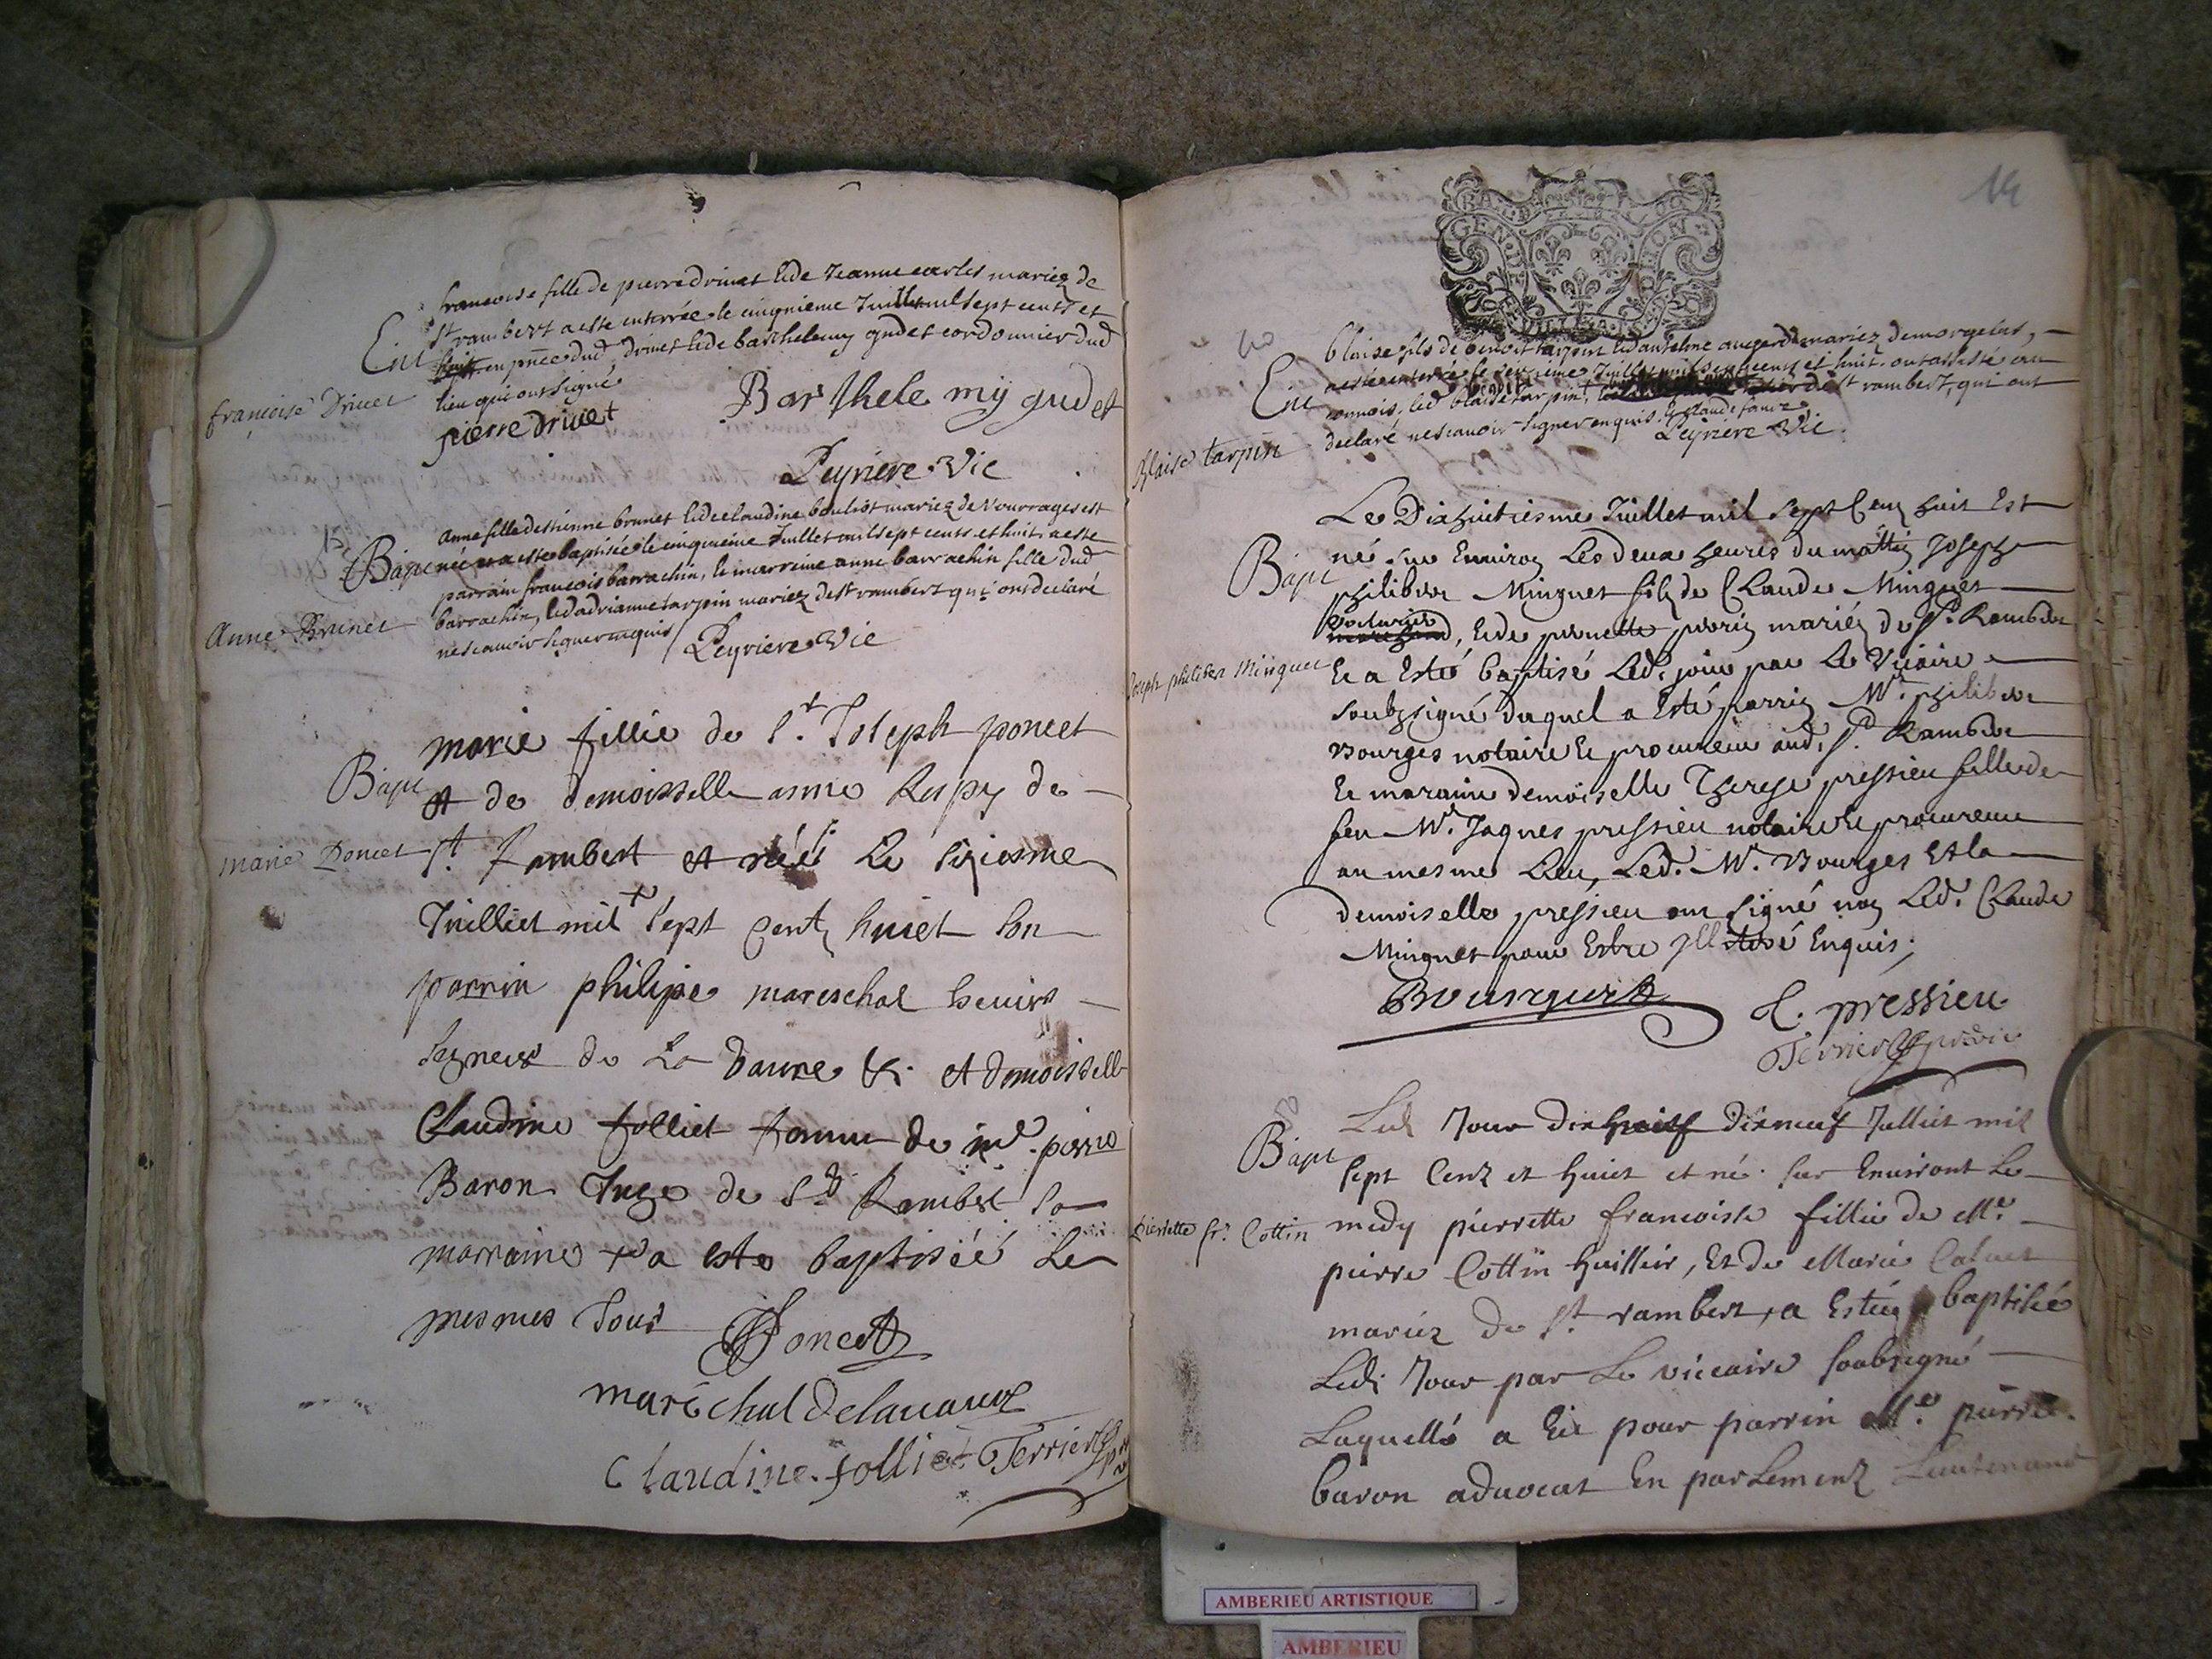 francoise fille de pierre drivet & de Jeanne carles mariez de
St rambert a esté enterrée le cinquieme Juillet mil sept cents et
Ent huit en pñce dud. drivet & de barthelemy gudet cordonnier dud
lieu qui ont signé
françoise Drivet
pierre drivet
Barthelemy gudet
Peyriere Vic
anne fille destienne brunet & de claudine boulliot mariez de Vourrages est
Bapt née et a esté baptisée le cinquieme Juillet mil sept cents et huit, a esté
parrain francois barrachin, la marreine anne barrachin fille dud
barrachin, & dadrianne tarpin mariez de St rambert qui ont declaré
Anne Brunet
ne scavoir signer enquis
Peyriere Vic
marie fillie de Sr. Joseph poncet
Bapt et de demoisselle anne de
marie Poncet St. Rambert et néé Le siziesme
Juilliet mil sept cent huiet son
parrin philipe mareschal
segneur de La et demoisselle
Claudine folliet famme de me. pierre
Baron Juge de St. Rambert sa
marraine a este baptiséé Le
mesmes Jour
Poncet
maréchal delavaux
Claudine folliet Terrier
14
GEN DE
blaise fils de benoit tarpin & danthelme mariez de morgelas,
a esté enterré le Juillet mil sept cents et huit. ont assisté au
Ent convois, led blaise tarpin, St rambert, qui ont
declaré ne scavoir signer enquis. & claude
Blaise tarpin
Peyriere Vic
Le Dixhuitiesme Juillet mil sept Cens huit Est
né sur Environ Les deux heures du mattin Joseph
Bapt philibert Minguet fils de Claude Minguet
voiturier
marchand, & de pernette perrin mariés de St. Rambert
Joseph philibert Minguet
Et a Esté baptisé Led. jour par Le Vicaire
soubzsigné duquel a Esté parrin Mr. philibert
Bourges notaire & procureur aud. St. Rambert
Et maraine demoiselle Therese pressieu fille de
feu Mr. Jaques pressieu notaire & procureur
au mesme Lieu, Led. Mr. Bourges Et la
demoiselle pressieu ont signé non Led. Claude
Minguet pour Estre Illitéré Enquis;
T. pressieu
Terrier
Led Jour dixhuit dixneuf Julliet mil
Bapt sept Cenz et huiet et né sur Environt Le
Pierrette fr. Cottin
medy pierrette francoisse fillie de Mr.
pierre Cottin huillier, Et de Marie
mariez de St. rambert, a Estée baptisée
Ledi Jour par Le viccaire soubsegné
Laquelle a Eü pour parrin Mr. pierre
baron advocat En parlement Lieutenant
AMBERIEU ARTISTIQUE
AMBERIEU